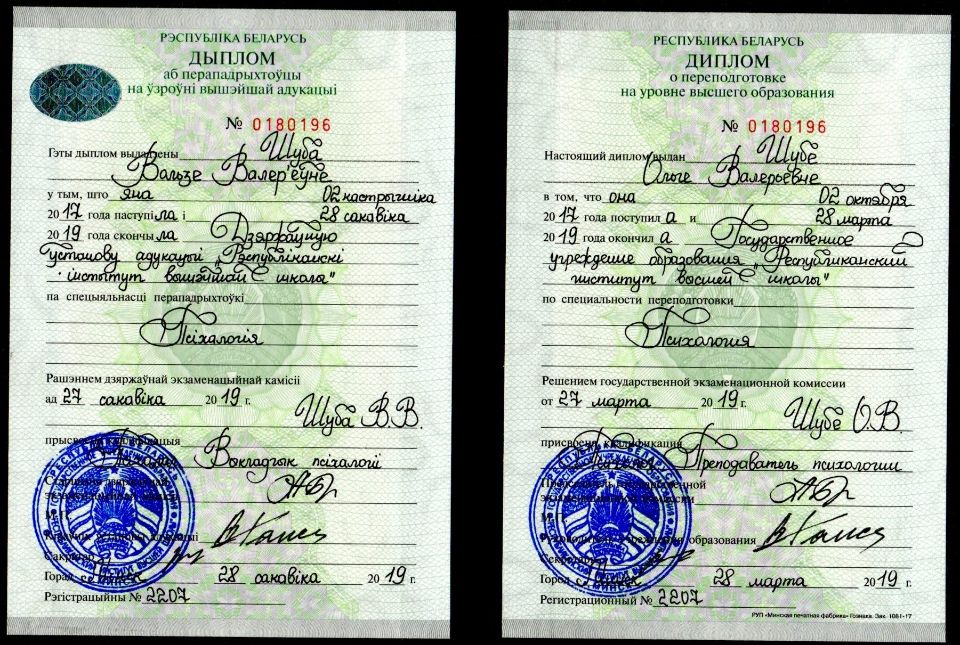 РЭСПУБЛІКА БЕЛАРУСЬ
ДЫПЛОМ
аб перападрыхтоўцы
на ўзроўні вышэйшай адукацыі
№ 0180196
Гэты дыплом выдадзены Шуба
Вользе Валер'еўне
у тым, што яна 02 кастрычніка
2017 года паступіла і 28 сакавіка
2019 года скончыла Дзяржаўную
установу адукацыі „Рэспубліканскі
інстытут вышэйшай школы"
па спецыяльнасці перападрыхтоўкі
Псіхалогія
Рашэннем дзяржаўнай экзаменацыйнай камісіі
ад 27 сакавіка 2019 г.
Шуба В.В.
прысвоена кваліфікацыя
Выкладчык псіхалогіі
Старшыня дзяржаўнай
экзаменацыйнай камісіі
М.П.
Кіраўнік установы адукацыі
Сакратар
Горад 28 сакавіка 2019 г.
Рэгістрацыйны № 2207
РЕСПУБЛИКА БЕЛАРУСЬ
ДИПЛОМ
о переподготовке
на уровне высшего образования
№ 0180196
Настоящий диплом выдан Шубе
Ольге Валерьевне
в том, что она 02 октября
2017 года поступила и 28 марта
2019 года окончила Государственное
учреждение образования „Республиканский
институт высшей школы"
по специальности переподготовки
Психология
Решением государственной экзаменационной комиссии
от 27 марта 2019 г.
Шубе О.В
присвоена квалификация
Преподаватель психологии
Председатель государственной
экзаменационной комиссии
М.П.
Руководитель учреждения образования
Секретарь
Город 28 марта 2019 г.
Регистрационный № 2207
РУП «Минская печатная фабрика» Гознака. Зак. 1081-17